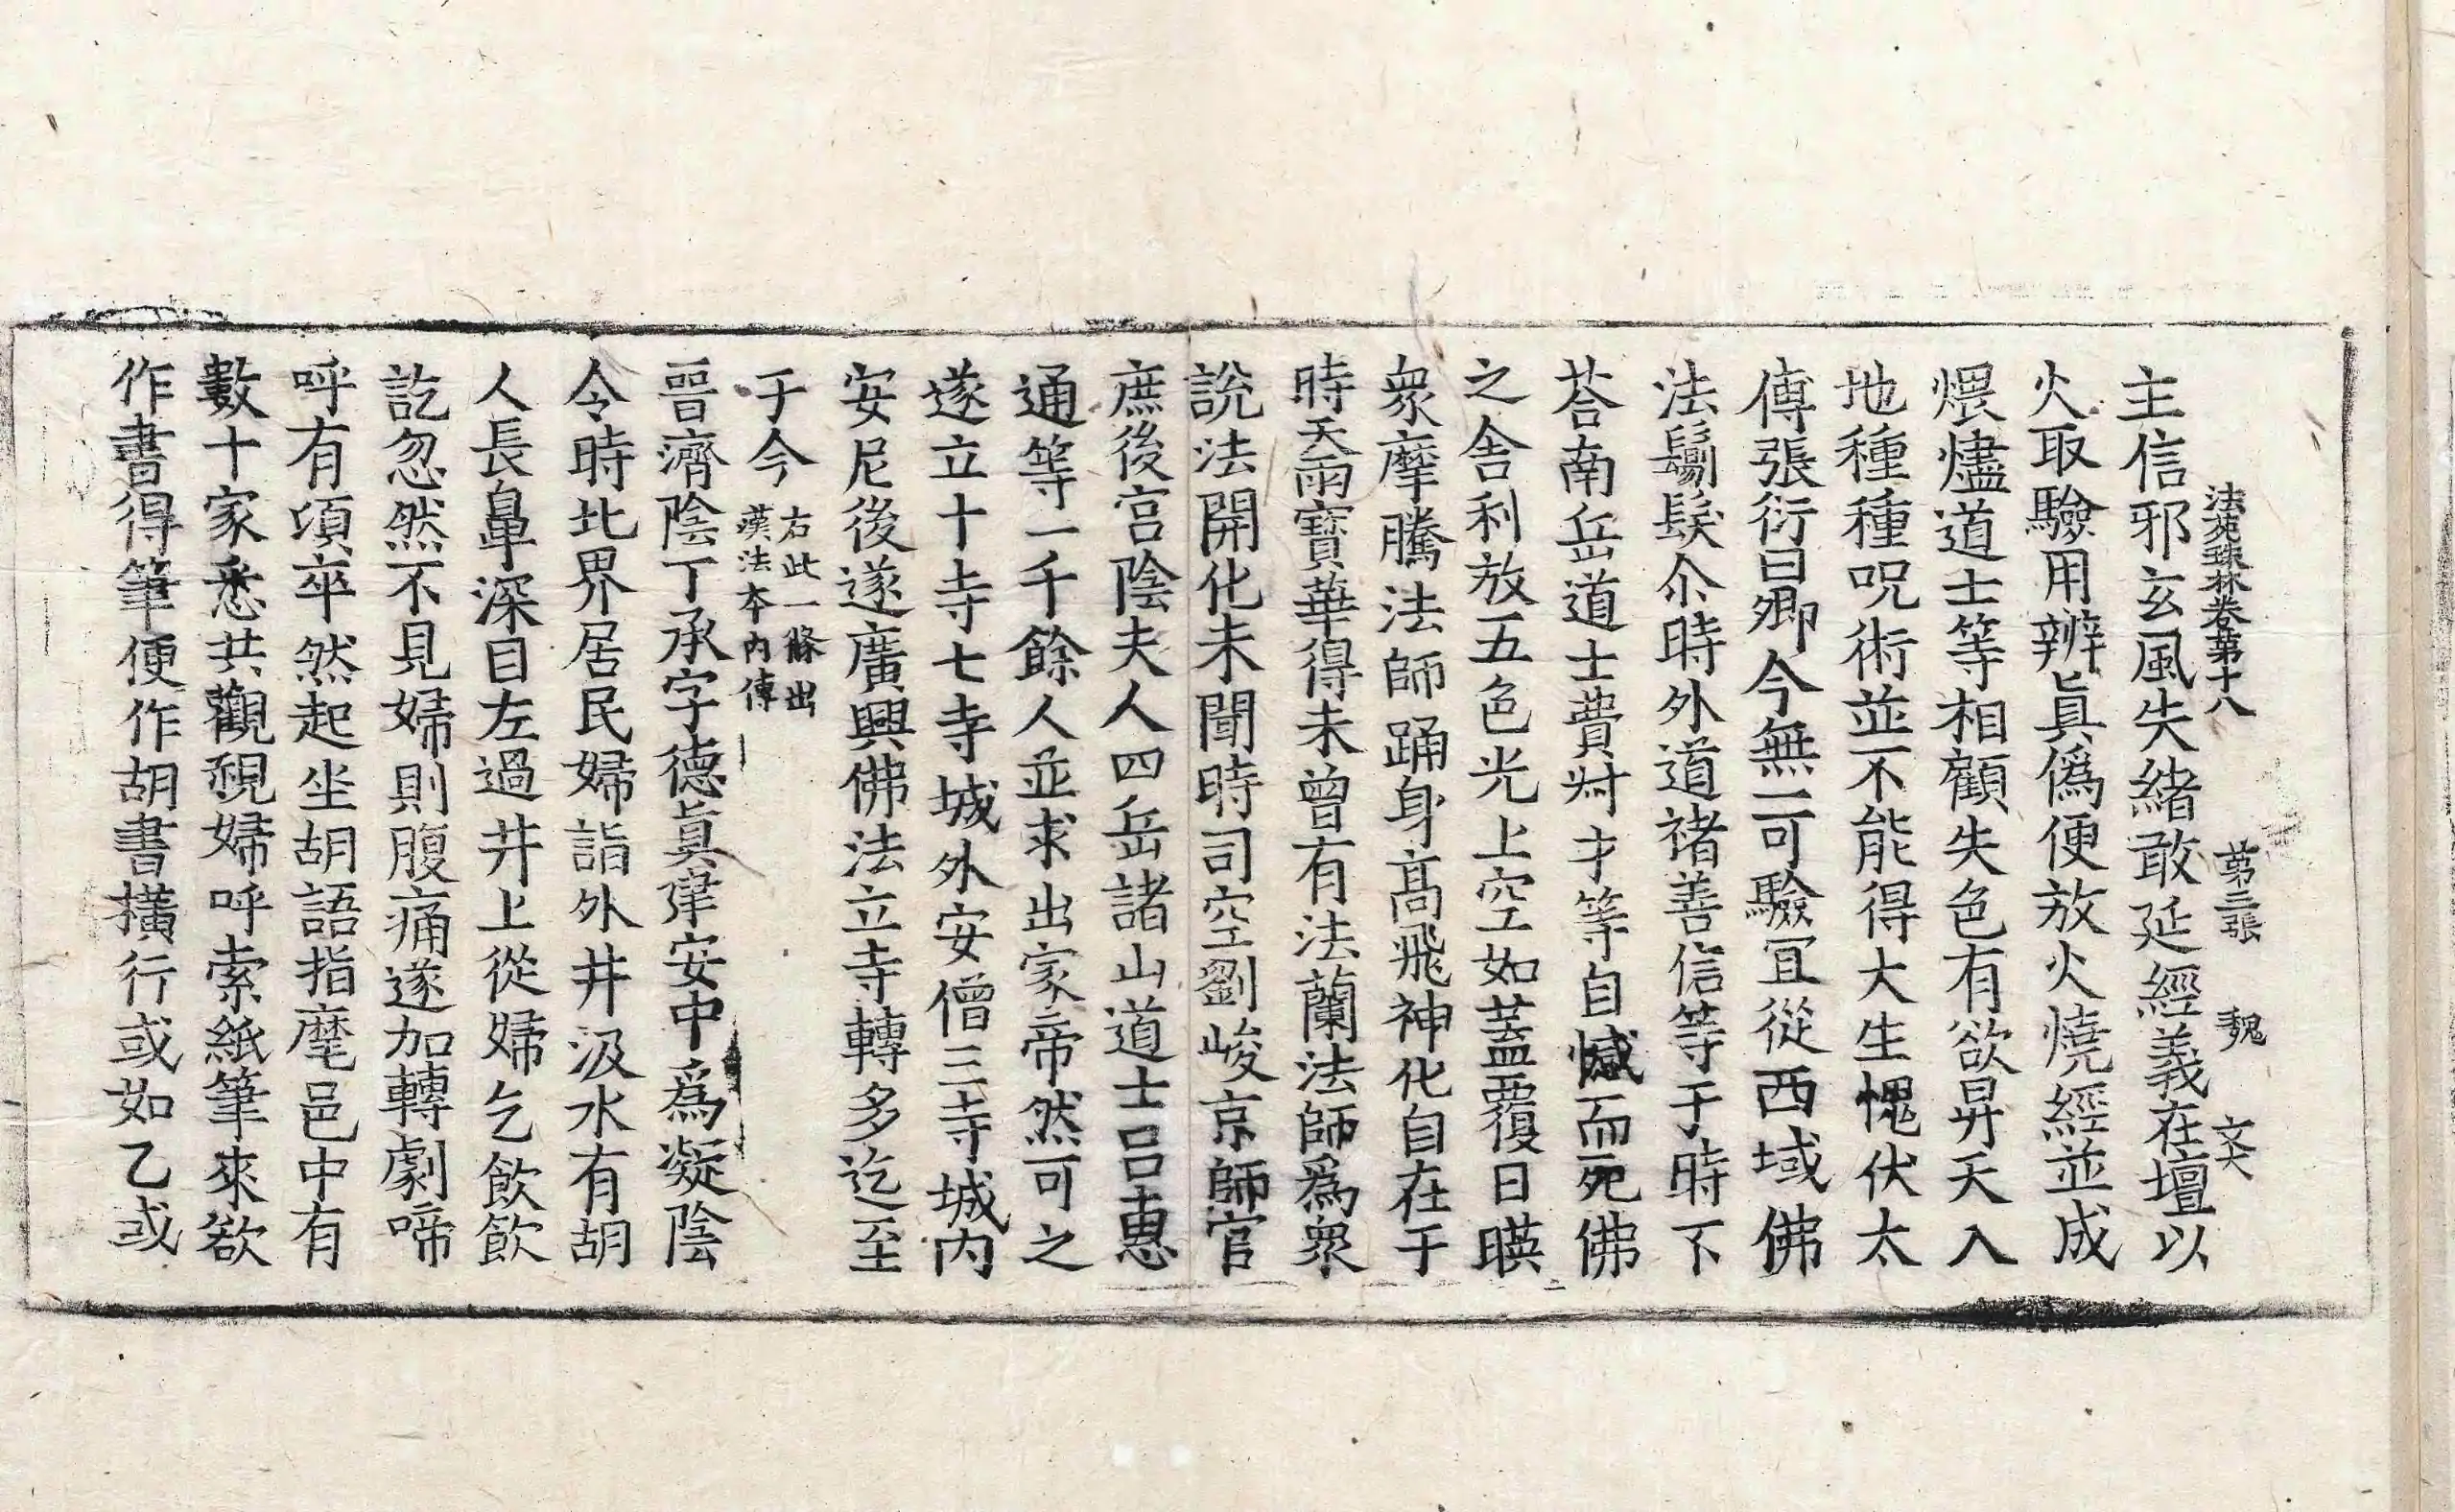 法苑珠林卷第十八 第三張 魏 文大
主信邪玄風失緒敢延經義在壇以
火取驗用辨眞僞便放火燒經並成
煨燼道士等相顧失色有欲昇天入
地種種呪術並不能得大生愧伏太
傅張衍曰卿今無一可驗冝從西域佛
法鬀髮尒時外道禇善信等于時下
荅南岳道士費叔才等自憾而死佛
之舍利放五色光上空如蓋覆日暎
衆摩騰法師踊身高飛神化自在于
時天雨寶華得未曾有法蘭法師爲衆
說法開化未聞時司空劉峻京師官
庶後宮陰夫人四岳諸山道士呂惠
通等一千餘人並求出家帝然可之
遂立十寺七寺城外安僧三寺城內
安尼後遂廣興佛法立寺轉多迄至
于今右此一條出漢法本內傳
晉濟陰丁承字德眞建安中爲凝陰
令時北界居民婦詣外井汲水有胡
人長鼻深目左過井上從婦乞飮飮
訖忽然不見婦則腹痛遂加轉劇啼
呼有頃卒然起坐胡語指麾邑中有
數十家悉共觀視婦呼索紙筆來欲
作書得筆便作胡書橫行或如乙或